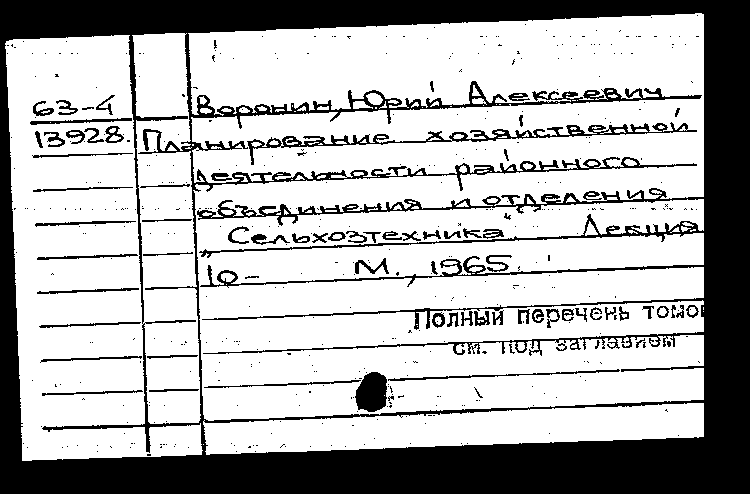 63-4
13928.
Воронин, Юрий Алексеевич
Планирование хозяйственной
деятельности районного
объединения и отделения
„Сельхозтехника“. Лекция
10- М., 1965.
Полный перечень томов
см. под заглавием